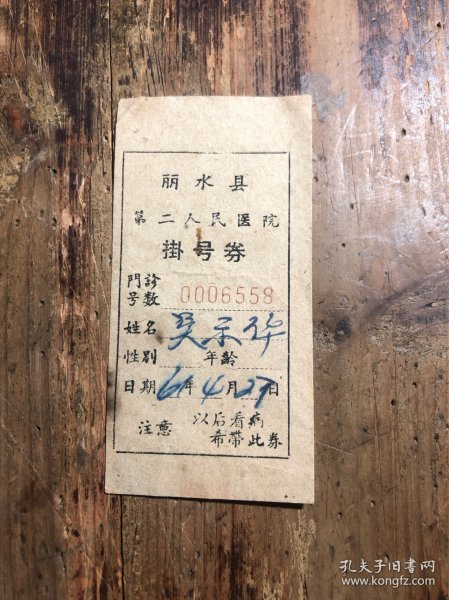 丽水县
第二人民医院
掛号券
門診号数 0006558
姓名 吴示华
性别 年龄
日期 61年4月27日
注意 以后看病
希带此券
孔夫子旧书网
www.kongfz.com